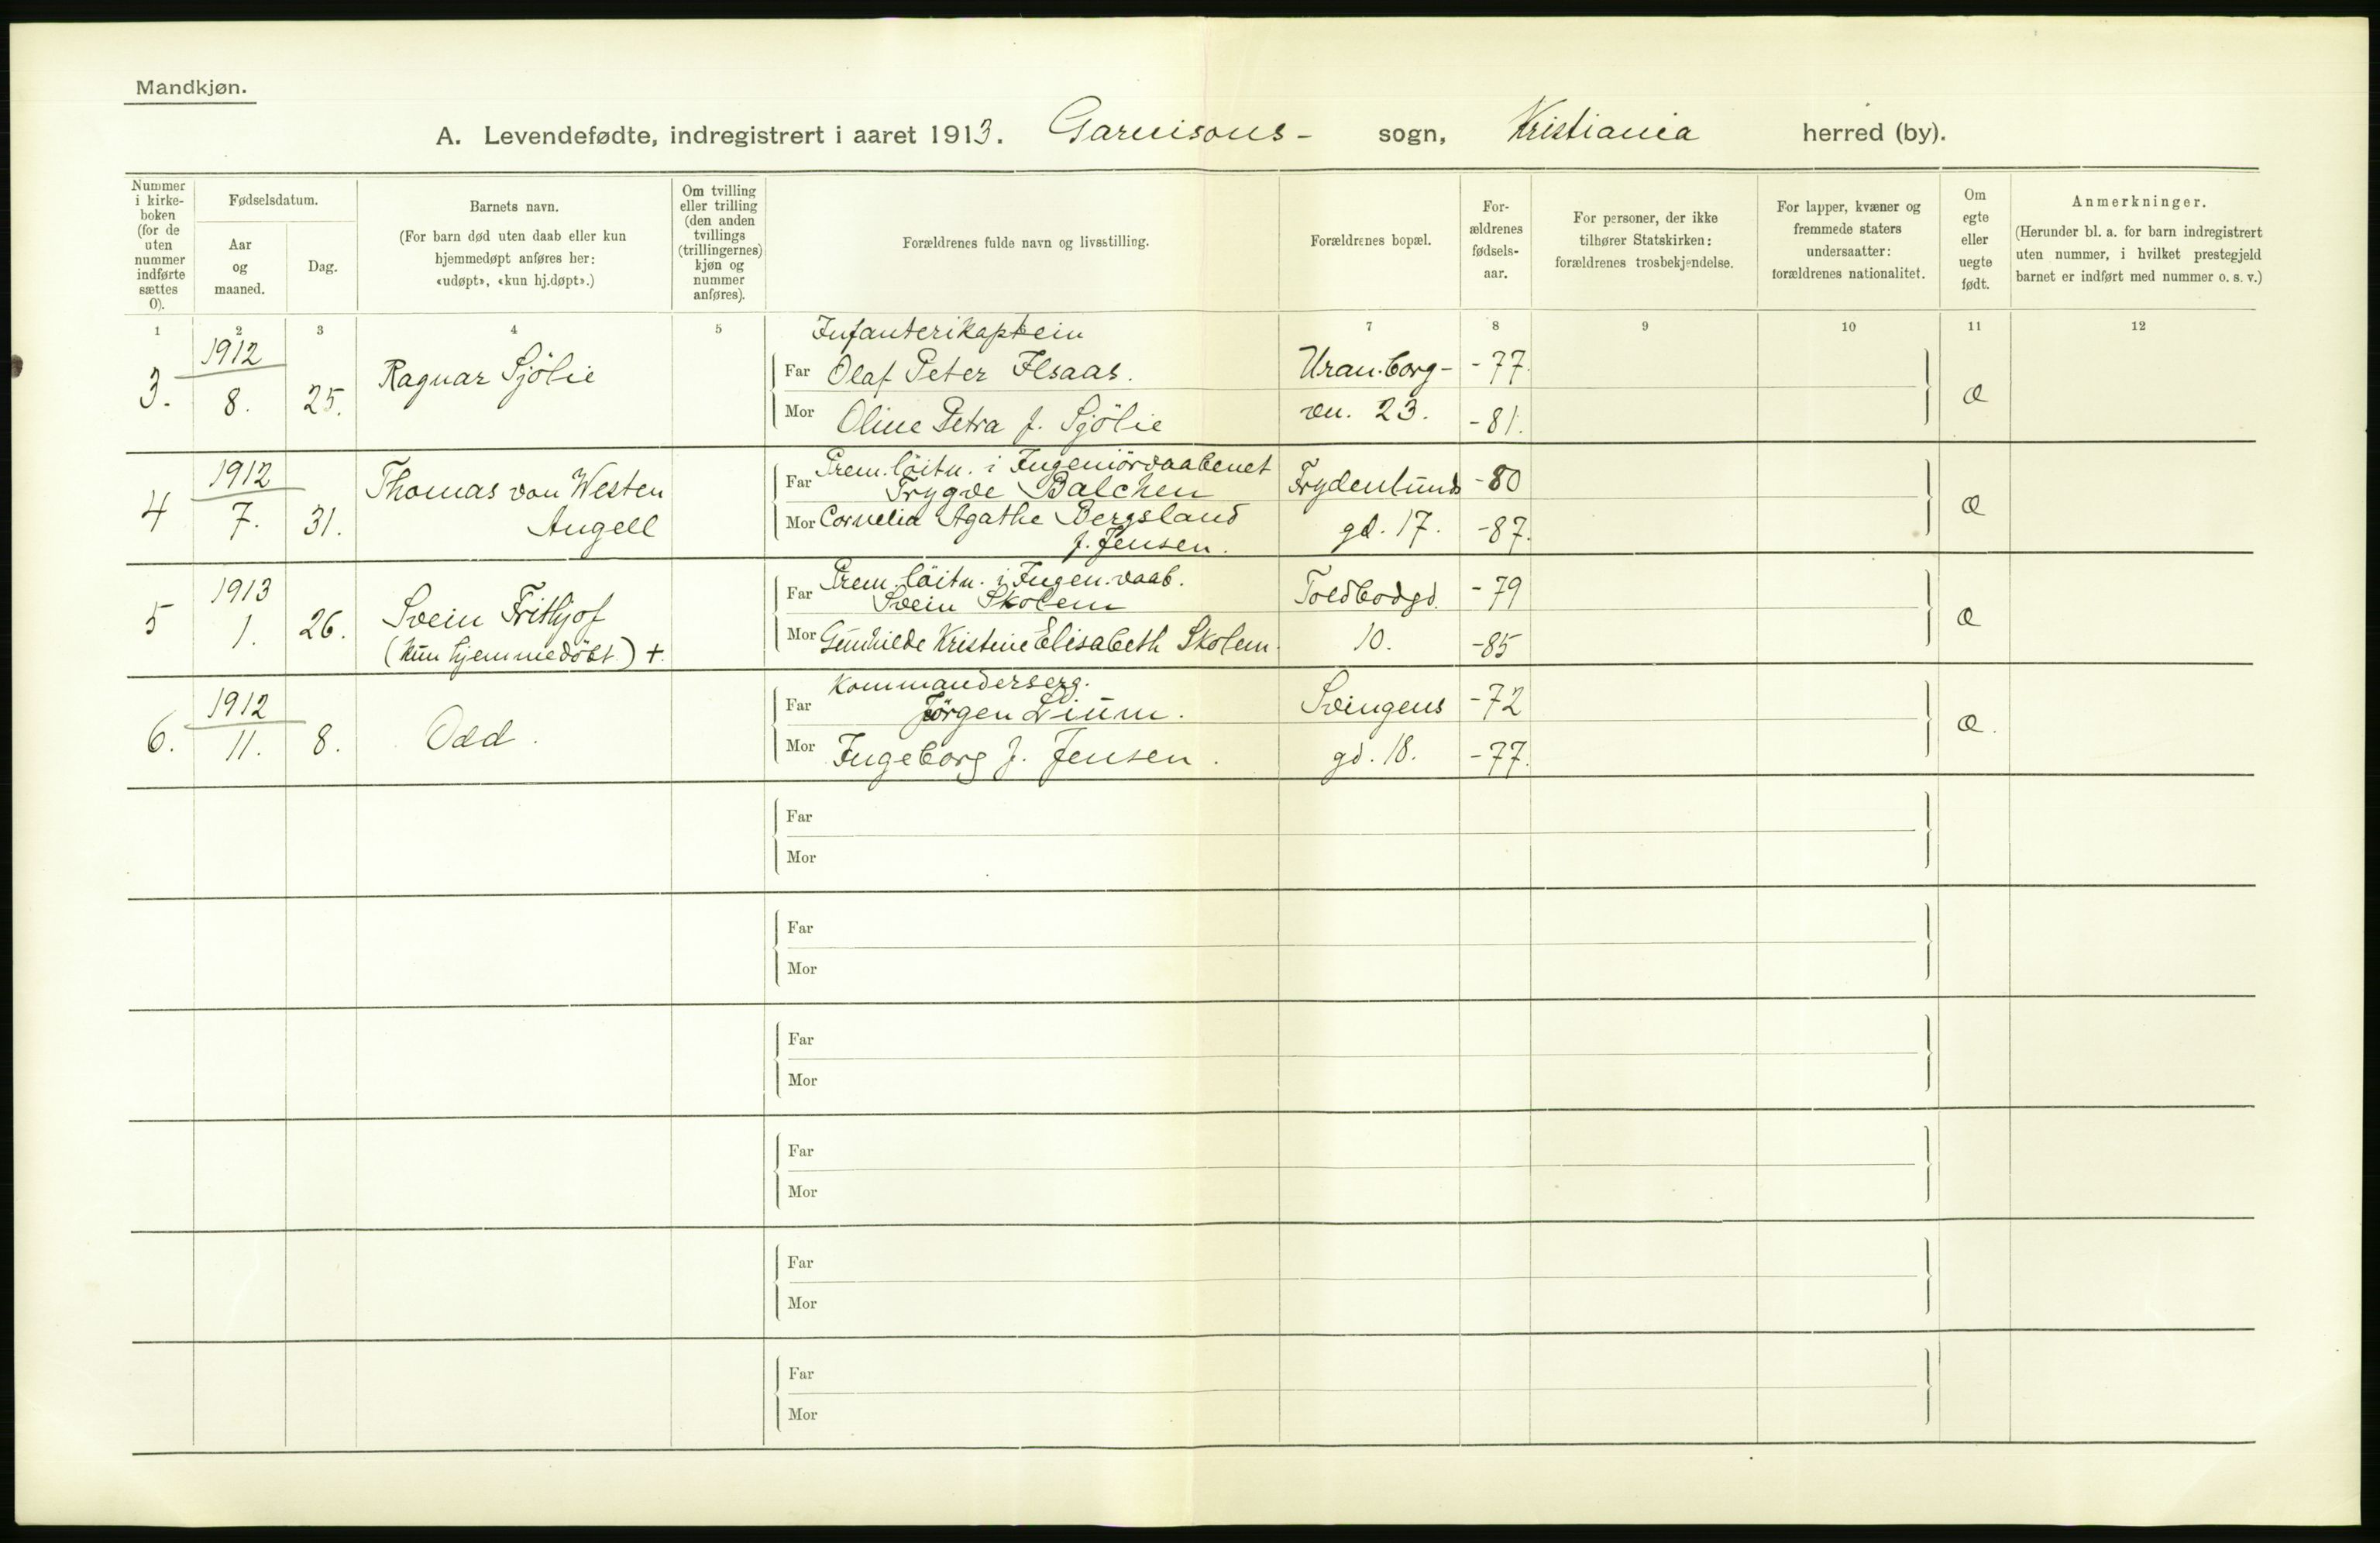 Mandkjøn.
A. Levendefødte, indregistrert i aaret 1913. Garnisons- sogn, Kristiania herred (by).
Nummer i kirke-boken (for de uten nummer indførte sættes 0).
Fødselsdatum.
Aar og maaned.
Dag.
Barnets navn.
(For barn død uten daab eller kun hjemmedøpt anføres her: «udøpt», «kun hj.døpt».)
Om tvilling eller trilling (den anden tvillings (trillingernes) kjøn og nummer anføres).
Forældrenes fulde navn og livsstilling.
Forældrenes bopæl.
For-ældrenes fødsels-aar.
For personer, der ikke tilhører Statskirken: forældrenes trosbekjendelse.
For lapper, kvæner og fremmede staters undersaatter: forældrenes nationalitet.
Om egte eller uegte født.
Anmerkninger.
(Herunder bl. a. for barn indregistrert uten nummer, i hvilket prestegjeld barnet er indført med nummer o. s. v.)
1 2 3 4 5 7 8 9 10 11 12
3. 1912 8. 25. Ragnar Sjölie
Infanterikaptein
Far Olaf Peter Ilsaas. Uranborg- -77.
Mor Oline Petra f. Sjölie vn. 23. -81. æ
4 1912 7. 31. Thomas von Westen
Angell
Far Prem.löitn. i Ingeniörvaabenet
Trygve Balchen Frydenlunds -80
Mor Cornelia Agathe Bergsland
f. Jensen. gd. 17. -87. æ
5 1913 1. 26. Svein Frithjof
(kun hjemmedöbt) +.
Far Prem.löitn. i Ingen.vaab.
Svein Skolem Toldbodgd. -79
Mor Gunhilde Kristine Elisabeth Skolem. 10. -85 æ
6. 1912 11. 8. Odd.
Kommanderserg.
Far Jörgen Lium. Svingens -72
Mor Ingeborg f. Jensen. gd. 18. -77. æ.
Far
Mor
Far
Mor
Far
Mor
Far
Mor
Far
Mor
Far
Mor